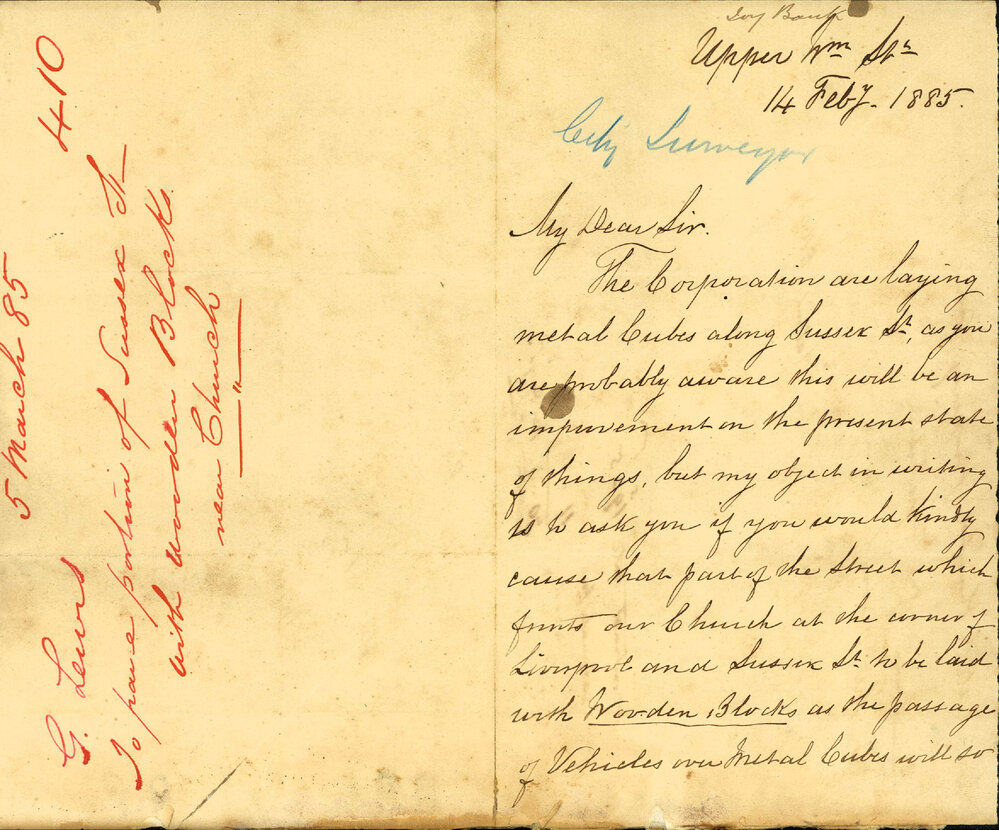 410
5 March 85
G. Lewis
To pave portion of Sussex St
with wooden Blocks.
near Church
Ivy Bank
Upper Wm St. S
14 Feby. 1885.
City Surveyor
My Dear Sir.
The Corporation are laying
metal Cubes along Sussex St, as you
are probably aware this will be an
improvement on the present state
of things, but my object in writing
is to ask you if you would kindly
cause that part of the Street which
fronts our Church at the corner of
Liverpool and Sussex St. to be laid
with Wooden Blocks as the passage
of Vehicles over Metal Cubes will so